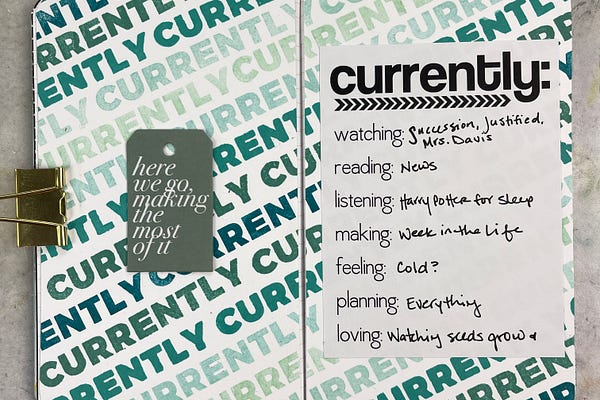 CURRENTLY CURRENTLY
here
we go,
making
the
most
of it
currently:
watching: Succession, Justified,
Mrs. Davis
reading: News
listening: Harry Potter for sleep
making: Week in the Life
feeling: Cold?
planning: Everything
loving: Watching seeds grow &